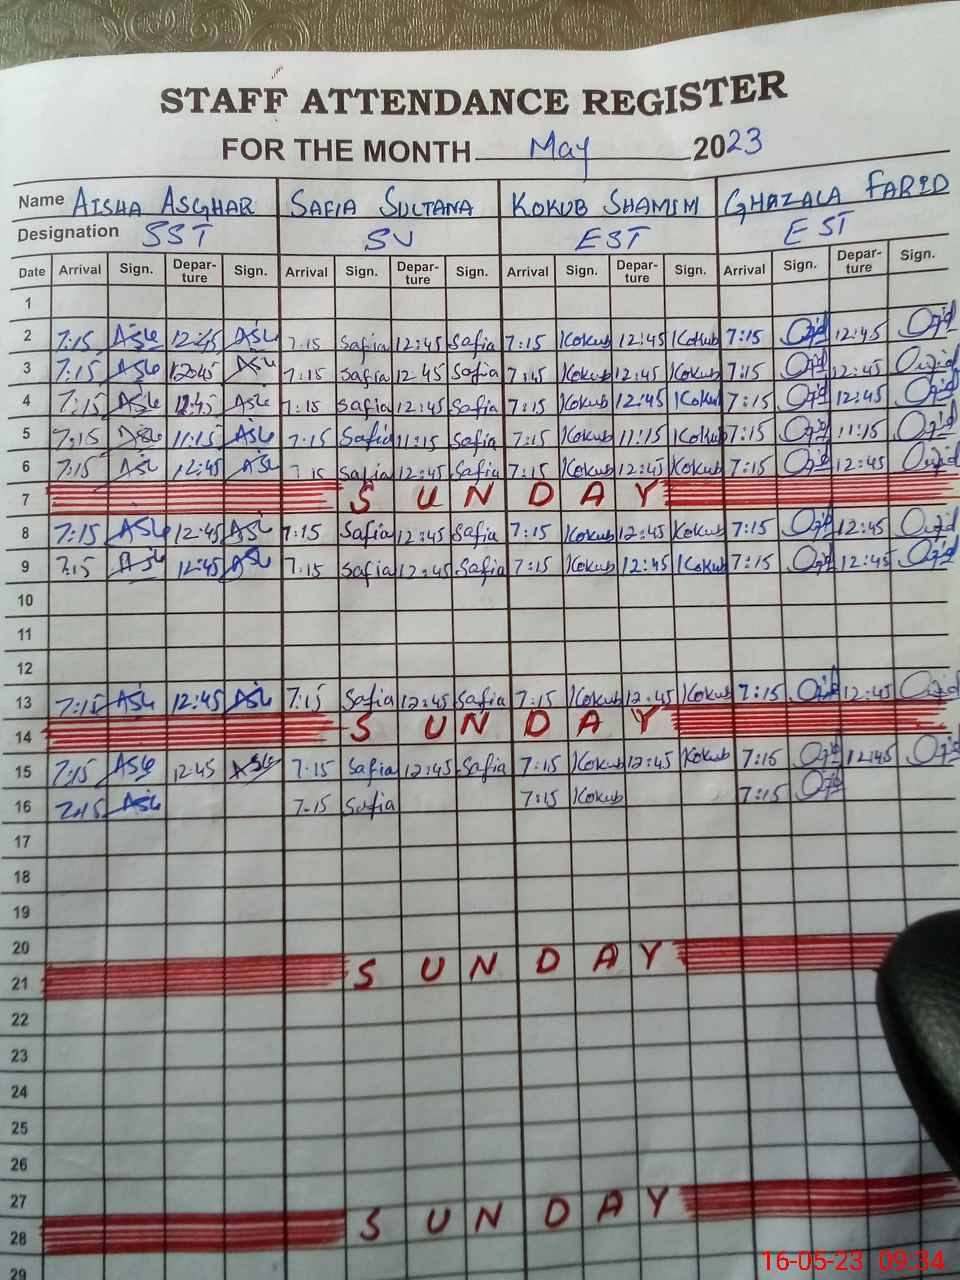 STAFF ATTENDANCE REGISTER
FOR THE MONTH May 2023
Name AISHA ASGHAR SAFIA SULTANA KOKUB SHAMIM GHAZALA FARID
Designation SST SV EST EST
Date Arrival Sign. Depar-ture Sign. Arrival Sign. Depar-ture Sign. Arrival Sign. Depar-ture Sign. Arrival Sign. Depar-ture Sign.
1
2 7:15 12:45 7:15 Safia 12:45 Safia 7:15 Kokub 12:45 Kokub 7:15 12:45
3 7:15 12:45 7:15 Safia 12:45 Safia Kokub 12:45 Kokub 7:15 12:45
4 7:15 12:45 7:15 Safia 12:45 Safia 7:15 Kokub 12:45 Kokub 7:15 12:45
5 7:15 11:15 7:15 Safia 11:15 Safia 7:15 Kokub 11:15 Kokub 7:15 11:15
6 7:15 12:45 7:15 Safia 12:45 Safia 7:15 Kokub 12:45 Kokub 7:15 12:45
7 SUNDAY
8 7:15 12:45 7:15 Safia 12:45 Safia 7:15 Kokub 12:45 Kokub 7:15 12:45
9 7:15 12:45 7:15 Safia 12:45 Safia 7:15 Kokub 12:45 Kokub 7:15 12:45
10
11
12
13 7:15 12:45 7:15 Safia 12:45 Safia 7:15 Kokub 12:45 Kokub 7:15 12:45
14 SUNDAY
15 7:15 12:45 7:15 Safia 12:45 Safia 7:15 Kokub 12:45 Kokub 7:15 12:45
16 7:15 7:15 Safia 7:15 Kokub 7:15
17
18
19
20
21 SUNDAY
22
23
24
25
26
27
28 SUNDAY
29
16-05-23 09:34